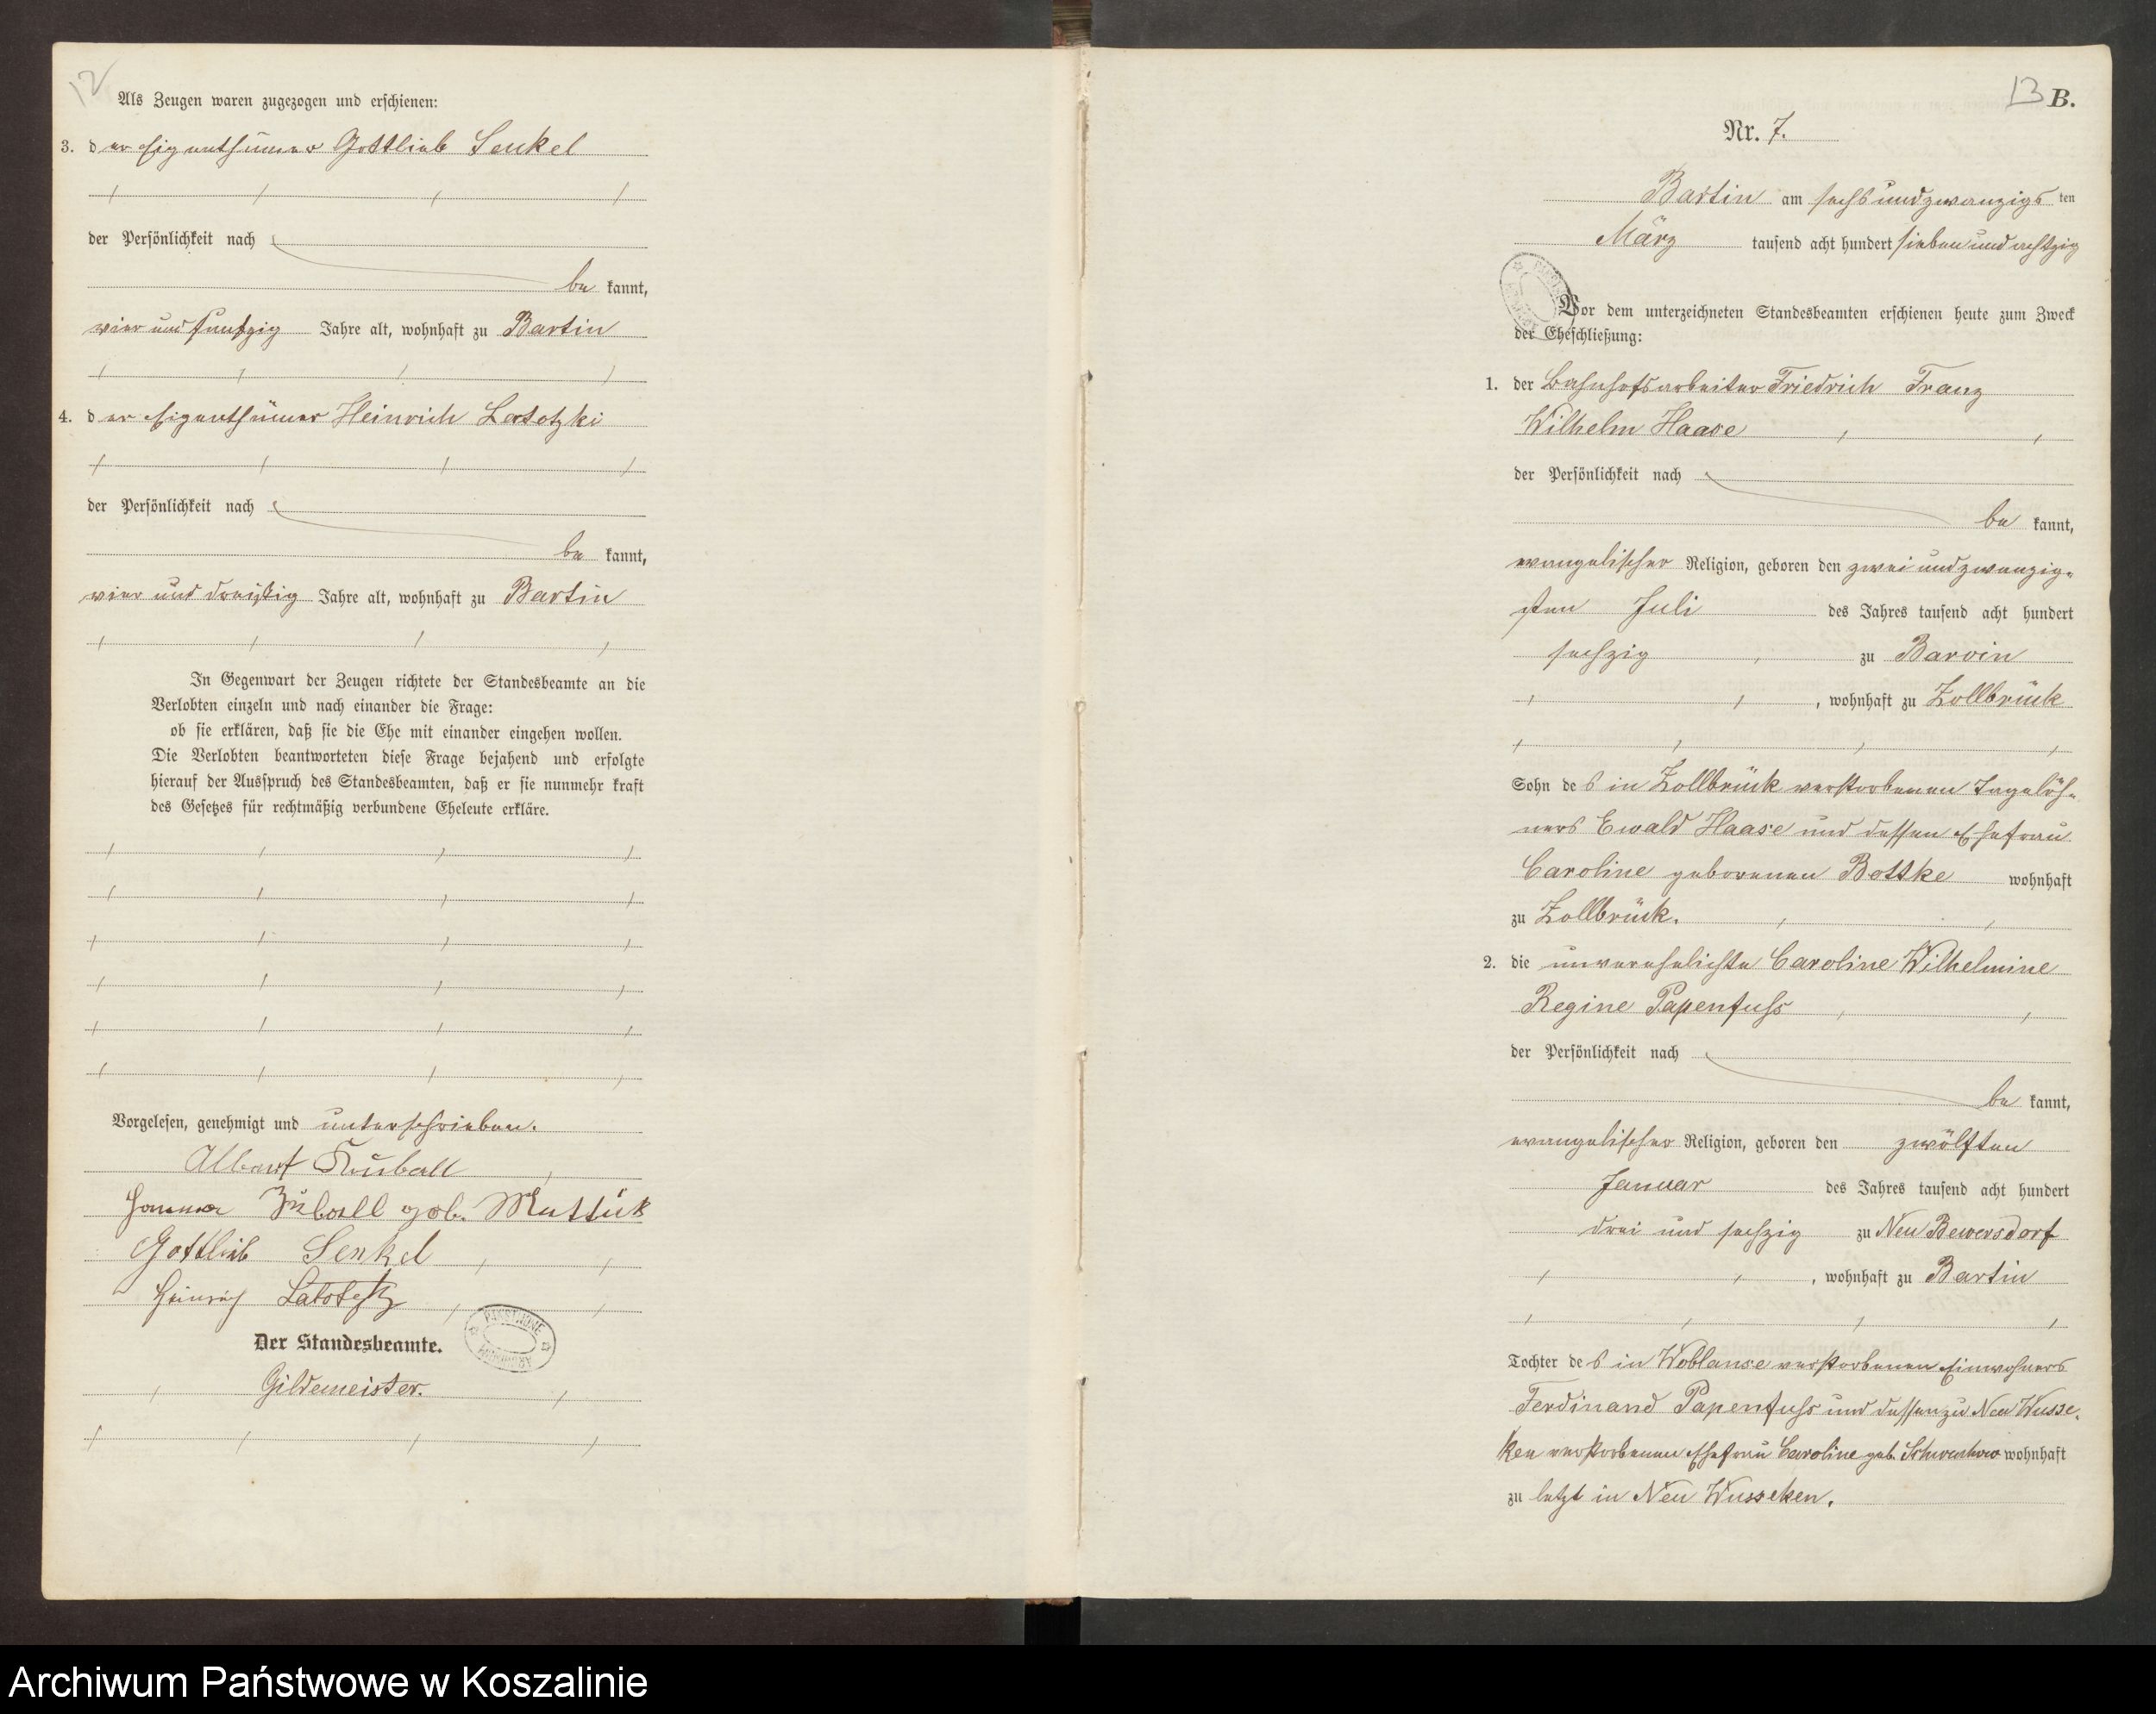 12
Als Zeugen waren zugezogen und erschienen:
3. der Eigenthümer Gottlieb Senkel
der Persönlichkeit nach
be kannt,
vier und funfzig Jahre alt, wohnhaft zu Bartin
4. der Eigenthümer Heinrich Latotzki
der Persönlichkeit nach
be kannt,
vier und dreißig Jahre alt, wohnhaft zu Bartin
In Gegenwart der Zeugen richtete der Standesbeamte an die
Verlobten einzeln und nach einander die Frage:
ob sie erklären, daß sie die Ehe mit einander eingehen wollen.
Die Verlobten beantworteten diese Frage bejahend und erfolgte
hierauf der Ausspruch des Standesbeamten, daß er sie nunmehr kraft
des Gesetzes für rechtmäßig verbundene Eheleute erkläre.
Vorgelesen, genehmigt und unterschrieben.
Albert Kuball
geb.
Gottlieb Senkel
Heinrich
Der Standesbeamte.
Gildemeister.
13 B.
Nr. 7.
Bartin am sechsundzwanzigs ten
März tausend acht hundert sieben und achtzig
Vor dem unterzeichneten Standesbeamten erschienen heute zum Zweck
der Eheschließung:
1. der Bahnhofsarbeiter Friedrich Franz
Wilhelm Haase
der Persönlichkeit nach
be kannt,
evangelischer Religion, geboren den zwei und zwanzig-
sten Juli des Jahres tausend acht hundert
sechzig zu Barvin
, wohnhaft zu Zollbrück
Sohn des in Zollbrück verstorbenen Tagelöh-
ners Ewald Haase und dessen Ehefrau
Caroline geborenen Bottke wohnhaft
zu Zollbrück.
2. die unverehelichte Caroline Wilhelmine
Regine Papenfuss
der Persönlichkeit nach
be kannt,
evangelischer Religion, geboren den zwölften
Januar des Jahres tausend acht hundert
drei und sechzig zu Neu Bewersdorf
, wohnhaft zu Bartin
Tochter des in Woblanse verstorbenen Einwohners
Ferdinand Papenfuss und dessen zu Neu Wusse-
ken verstorbenen Ehefrau Caroline geb. wohnhaft
zu letzt in Neu Wusseken.
Archiwum Państwowe w Koszalinie